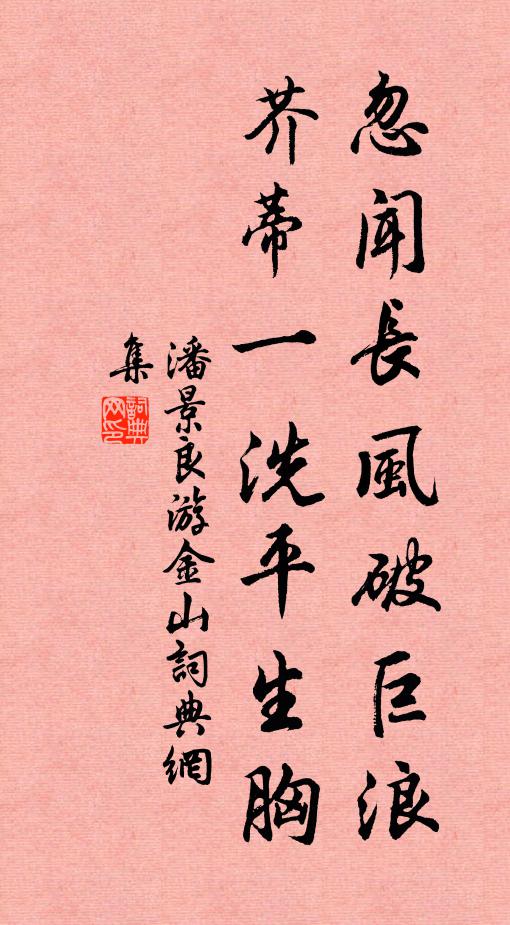 忽聞長風破巨浪
芥蒂一洗平生胸
潘景良游金山詞典網
集
詞典網印